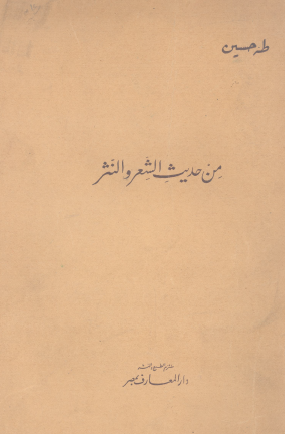 طه حسين
مِن حديثِ الشِّعر والنَّثر
ملتزم الطبع والنشر
دار المعارف بمصر